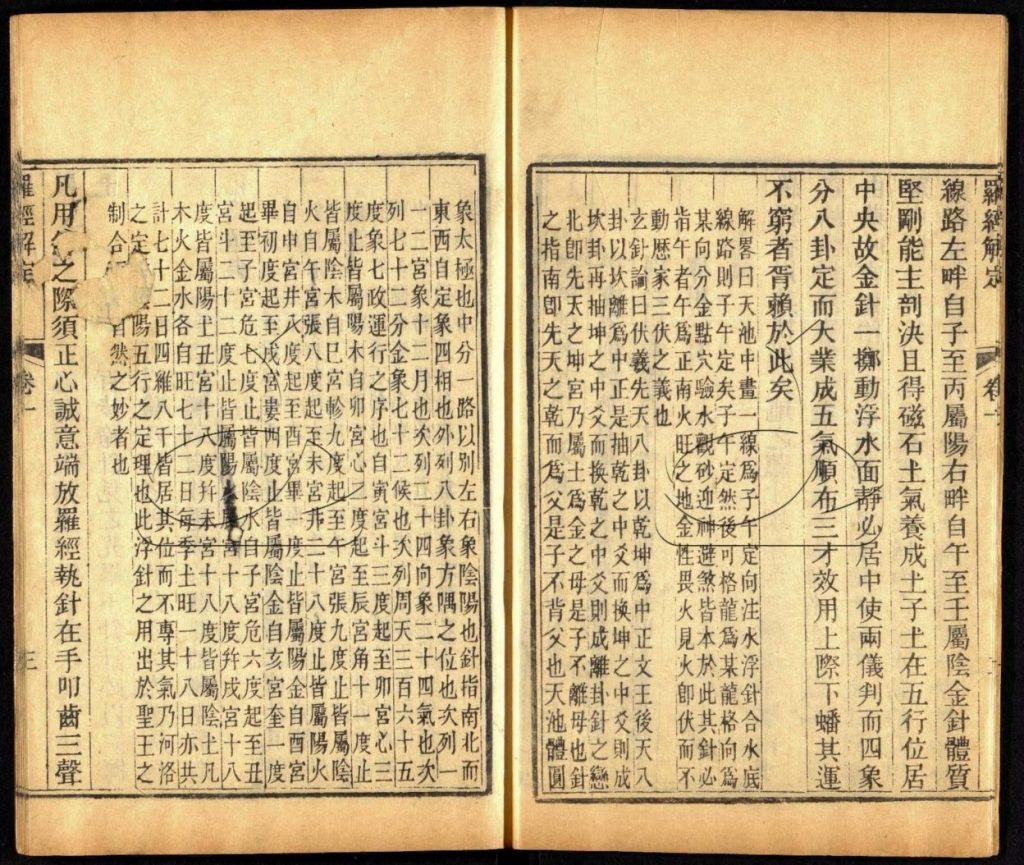 羅經解定 卷一
線路左畔自子至丙屬陽右畔自午至壬屬陰金針體質
堅剛能主剖決且得磁石土氣養成土子土在五行位居
中央故金針一擲動浮水面靜必居中使兩儀判而四象
分八卦定而大業成五氣順布三才效用上際下蟠其運
不窮者胥賴於此矣
解畧曰天池中畫一線為子午定向注水浮針合水底
線路則子午定矣子午定然後可格龍為某龍格向為
某向分金點穴驗水觀砂迎神避煞皆本於此其針必
指午者午為正南火旺之地金性畏火見火卽伏而不
動歷家三伏之義也
玄針論曰伏羲先天八卦以乾坤為中正文王後天八
卦以坎離為中正是抽乾之中爻而換坤之中爻則成
坎卦再抽坤之中爻而換乾之中爻則成離卦針之戀
北卽先天之坤宮乃屬土為金之母是子不離母也針
之指南卽先天之乾而為父是子不背父也天池體圓
象太極也中分一路以別左右象陰陽也針指南北而
東西自定象四相也外列八卦象方隅之位也次列一
一二宮象十二月也次列二十四向象二十四氣也次
列七十二分金象七十二候也次列周天三百六十五
度象七政運行之序也自寅宮斗三度起至卯宮心三
度止皆屬陽木自卯宮心乙度起至辰宮角十一度止
皆屬陰木自巳宮軫九度起至午宮張九度止皆屬陰
火自午宮張八度起至未宮井二十八度止皆屬陽火
自申宮井八度起至酉宮畢一度止皆屬陽金自酉宮
畢初度起至戌宮婁四度止皆屬陰金自亥宮奎一度
起至子宮危七度止皆屬陰水自子宮危六度起至丑
宮斗二十二度止皆屬陽水宮十八度幷戌宮十八
度皆屬陽土丑宮十八度幷未宮十八度皆屬陰土凡
木火金水各自旺七十二日每季土旺一十八日亦共
計七十二日四維八干皆居其位而不專其氣乃河洛
之定陽五行之定理也此浮針之用出於聖王之
制合自然之妙者也
凡用之際須正心誠意端放羅經執針在手叩齒三聲
羅經解定 卷一 三